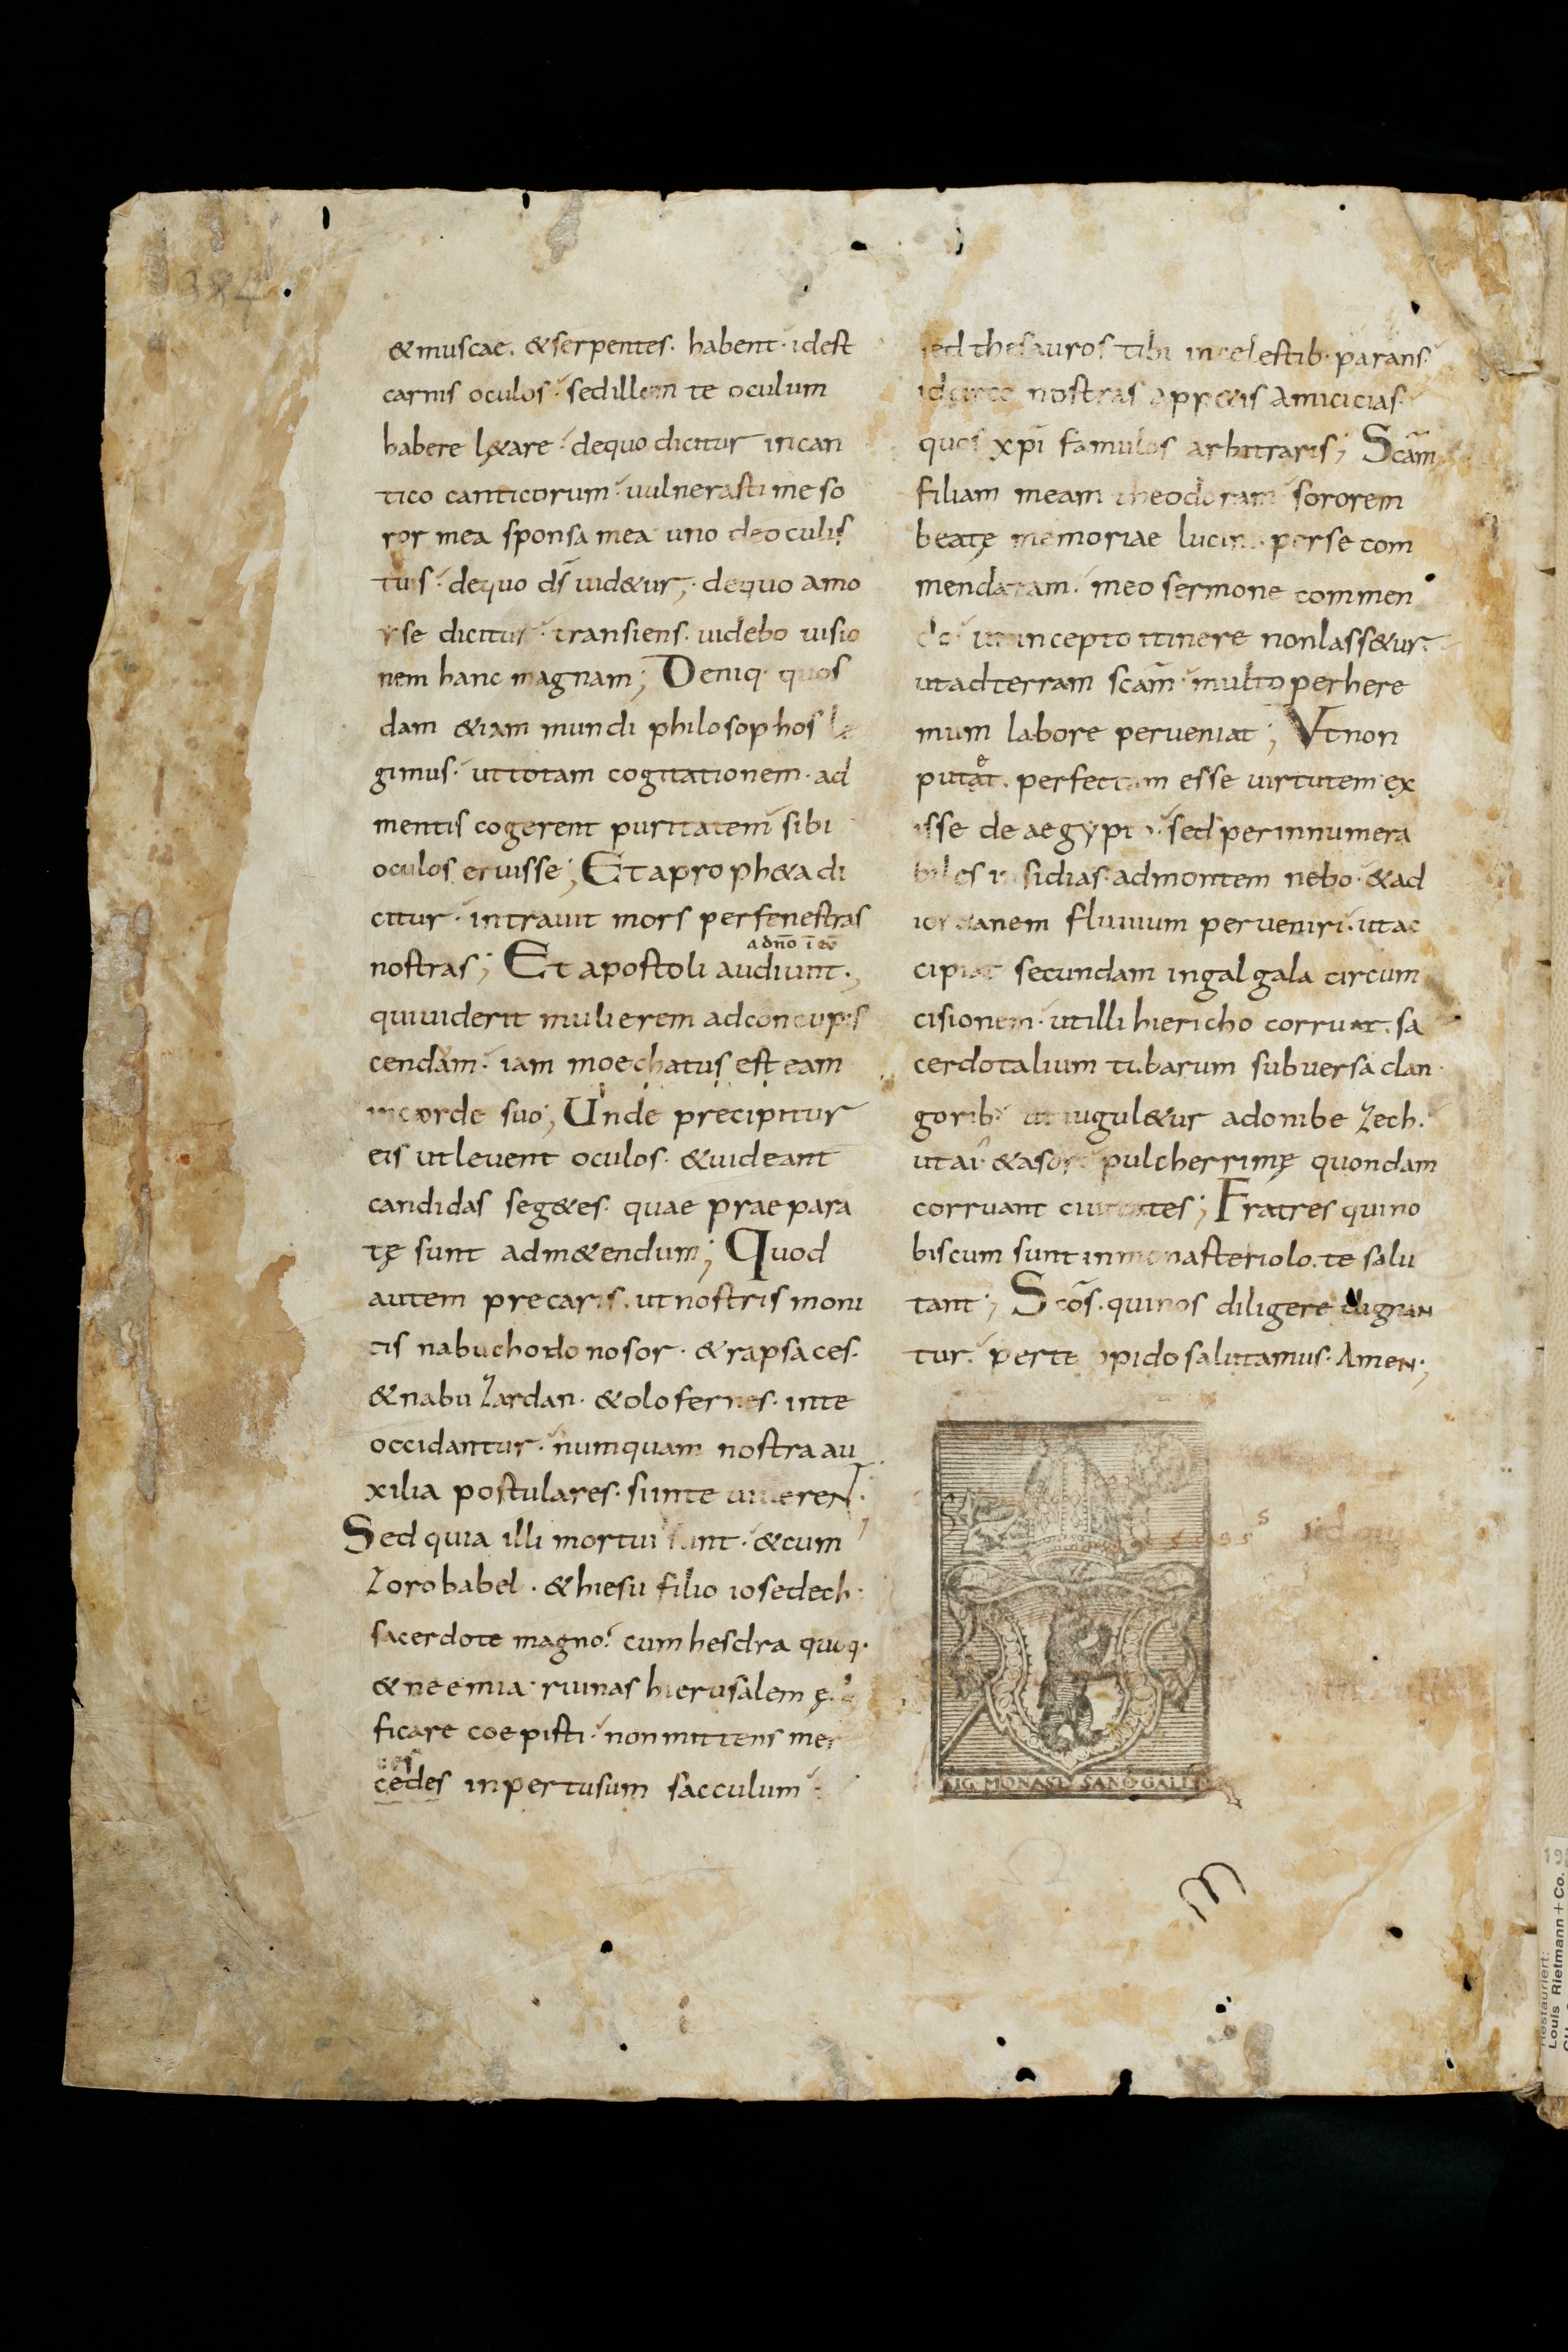 384
&muscae. &serpentes. habent. idest
carnis oculos. sedillum te oculum
habere l&are. dequo dicitur incan
tico canticorum. uulnerasti me so
ror mea sponsa mea uno deoculis
tuis. dequo ds̄ uid&ur; dequo amo
se dicitur. transiens. uidebo uisio
nem hanc magnam; Deniq· quos
dam &iam mundi philosophos le
gimus. uttotam cogitationem. ad
mentis cogerent puritatem sibi
oculos eruisse; Et aproph&a di
citur. intrauit mors perfenestras
nostras; Et apostoli audiunt.
adnō
quiuiderit mulierem adconcupis
cendam. iam moechatus est eam
incorde suo; Unde precipitur
eis utleuent oculos. &uideant
candidas seg&es. quae praepara
tę sunt adm&endum; Quod
autem precaris. utnostris moni
tis nabuchodonosor. &rapsaces.
&nabuzardan. &olofernes. inte
occidantur. numquam nostra au
xilia postulares. siinte uiuerent;
Sed quia illi mortui sunt. &cum
zorobabel. &hiesu filio iosedech.
sacerdote magno. cum hesdra quoq·
&neemia. ruinas hierusalem
ficare coepisti. nonmittens mer
cedes inpertusum sacculum.
sed thesauros tibi incelestib· parans.
idcirco nostras app&is amicicias.
quos xp̄i famulos arbitraris; Scām
filiam meam theodoram sororem
beatę memoriae lucini. perse com
mendatam. meo sermone commen
do. utincepto itinere nonlass&ur.
utadterram scām. multo perhere
mum labore perueniat; Vtnon
e
putat. perfectam esse uirtutem ex
isse de aegypto. sed perinnumera
biles insidias. admontem nebo. &ad
iordanem fluuium perueniri. utac
cipiat secundam ingalgala circum
cisionem. utilli hiericho corruat. sa
cerdotalium tubarum subuersa clan
gorib· ut iugul&ur adonibezech.
utai &asor pulcherrimę quondam
corruant ciuitates; Fratres quino
biscum sunt inmonasteriolo. te salu
tant; Scōs. quinos diligere dignan
tur. perte oppido salutamus. Amen;
sed qui
SIG. MONAST. SANC. GALLI
Restauriert:
Louis Rietmann + Co.